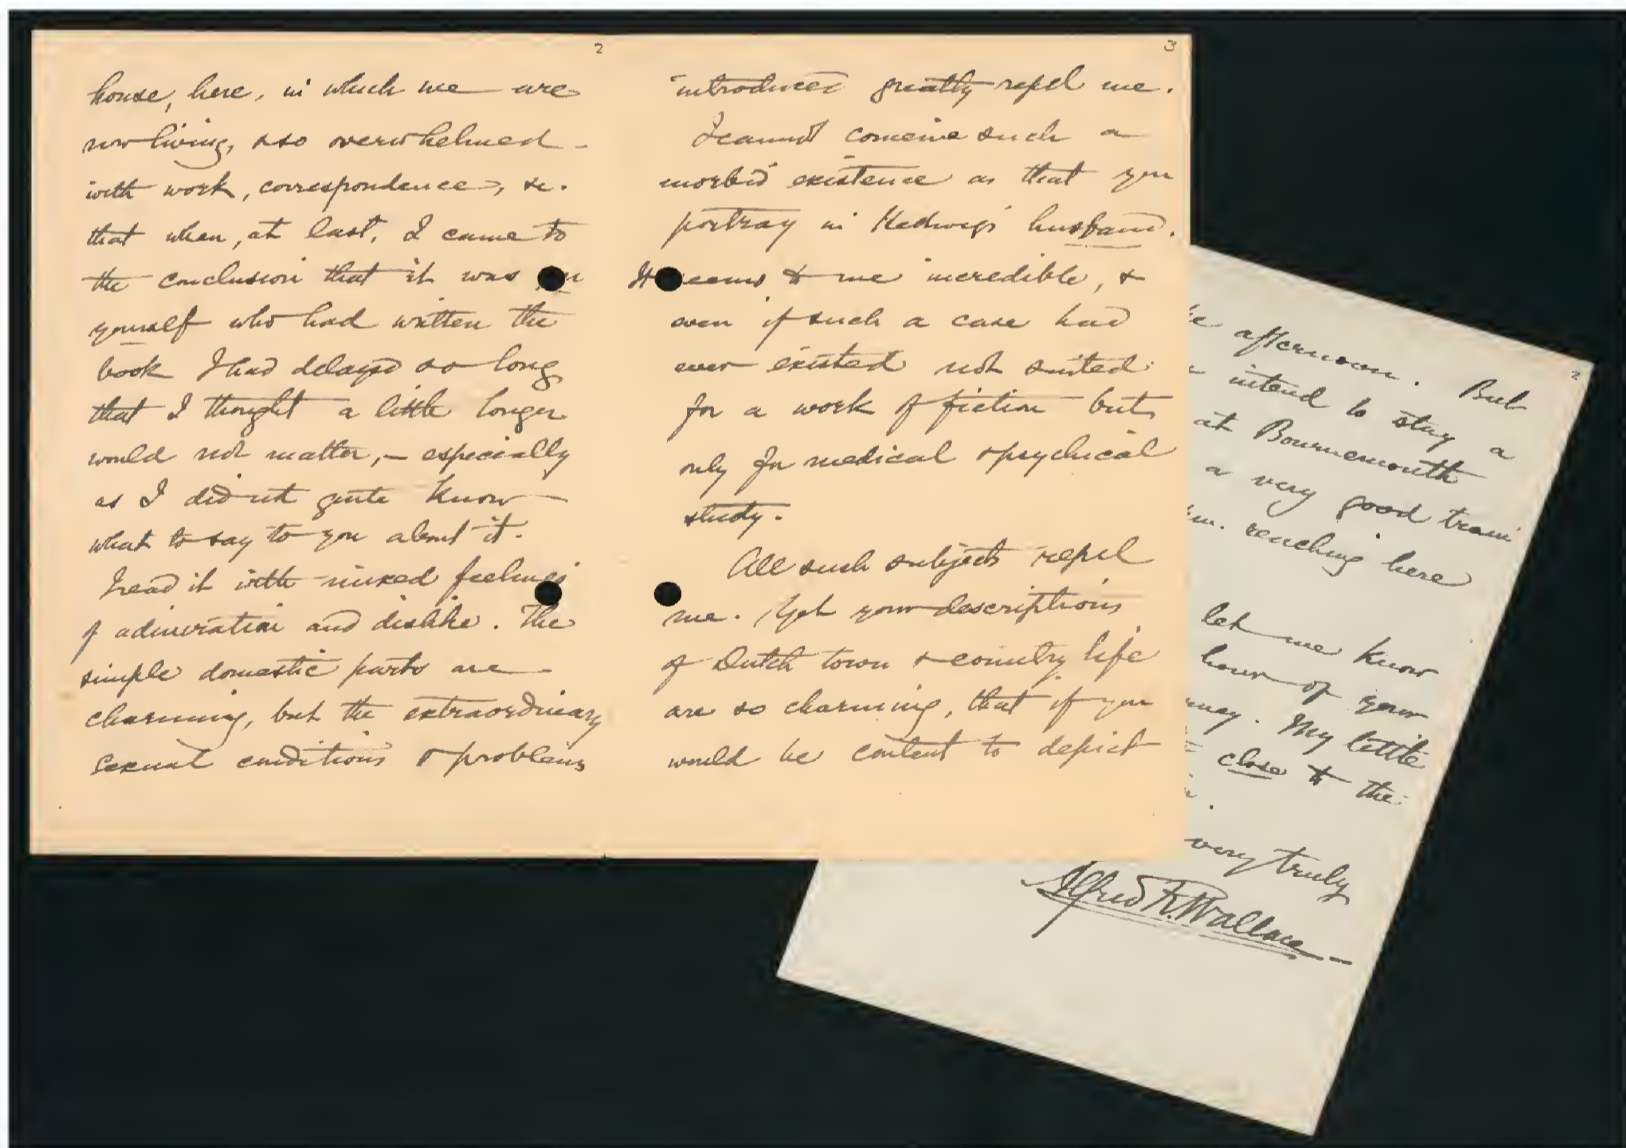 2
house, here, in which we are
now living, & so overwhelmed
with work, correspondence, &c.
that when, at last, I came to
the conclusion that it was
yourself who had written the
book I had delayed so long
that I thought a little longer
would not matter, – especially
as I did not quite know
what to say to you about it.
I read it with mixed feelings
of admiration and dislike. The
simple domestic parts are
charming, but the extraordinary
sexual conditions & problems
3
introduced greatly repel me.
I cannot conceive such a
morbid existence as that you
portray in Hedwig's husband.
It seems to me incredible, &
even if such a case had
ever existed not suited
for a work of fiction but
only for medical & psychical
study.
All such subjects repel
me. Yet your descriptions
of Dutch town & country life
are so charming, that if you
would be content to depict
2
afternoon. But
intend to stay a
at Bournemouth
a very good train
reaching here
let me know
hour of your
My little
close to the
very truly
Alfred R. Wallace